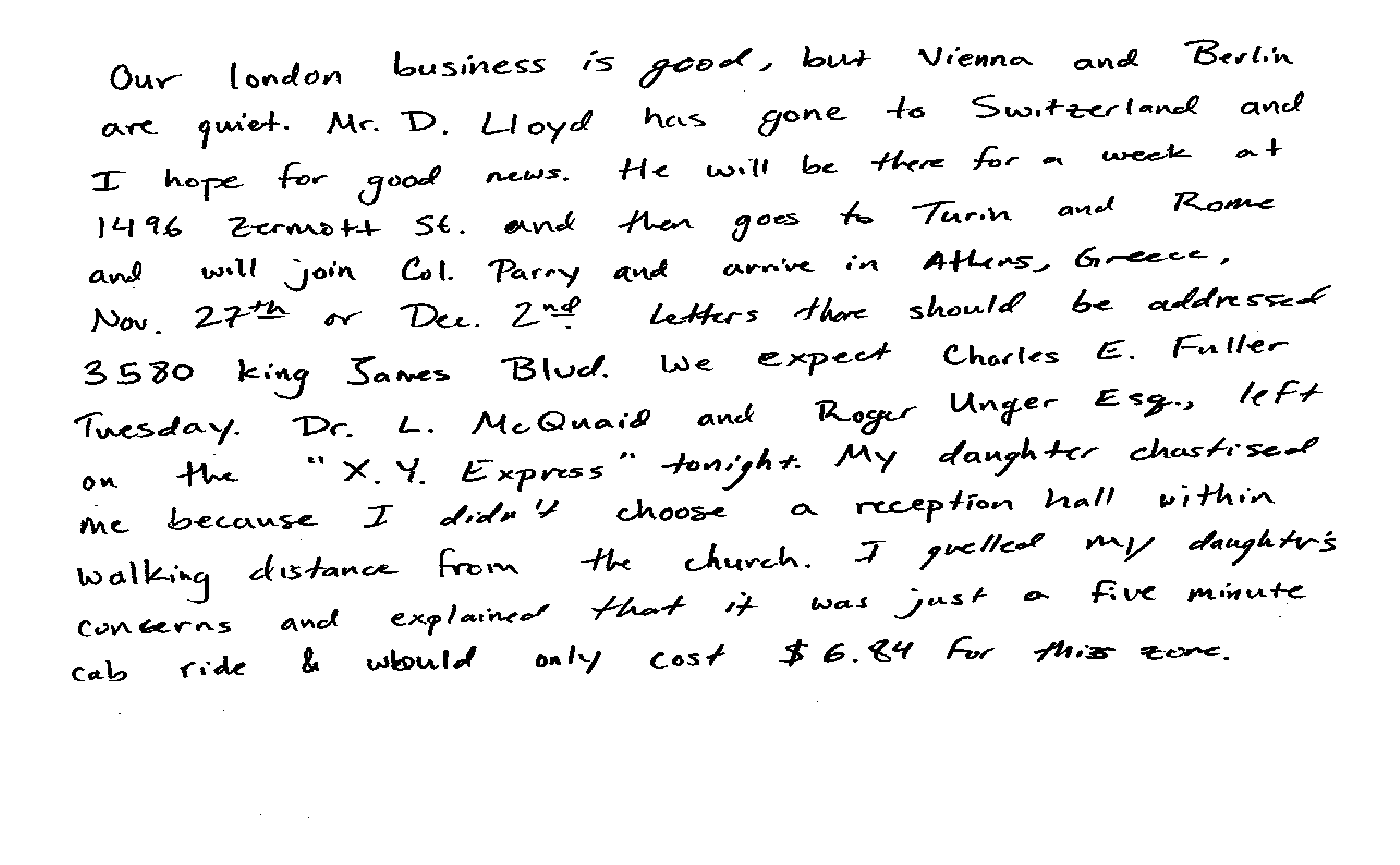 Our london business is good, but Vienna and Berlin
are quiet. Mr. D. Lloyd has gone to Switzerland and
I hope for good news. He will be there for a week at
1496 Zermott St. and then goes to Turin and Rome
and will join Col. Parry and arrive in Athens, Greece,
Nov. 27th or Dec. 2nd. Letters there should be addressed
3580 king James Blvd. We expect Charles E. Fuller
Tuesday. Dr. L. McQuaid and Roger Unger Esq., left
on the "X.Y. Express" tonight. My daughter chastised
me because I didn't choose a reception hall within
walking distance from the church. I quelled my daughter's
concerns and explained that it was just a five minute
cab ride & would only cost $6.84 for this zone.